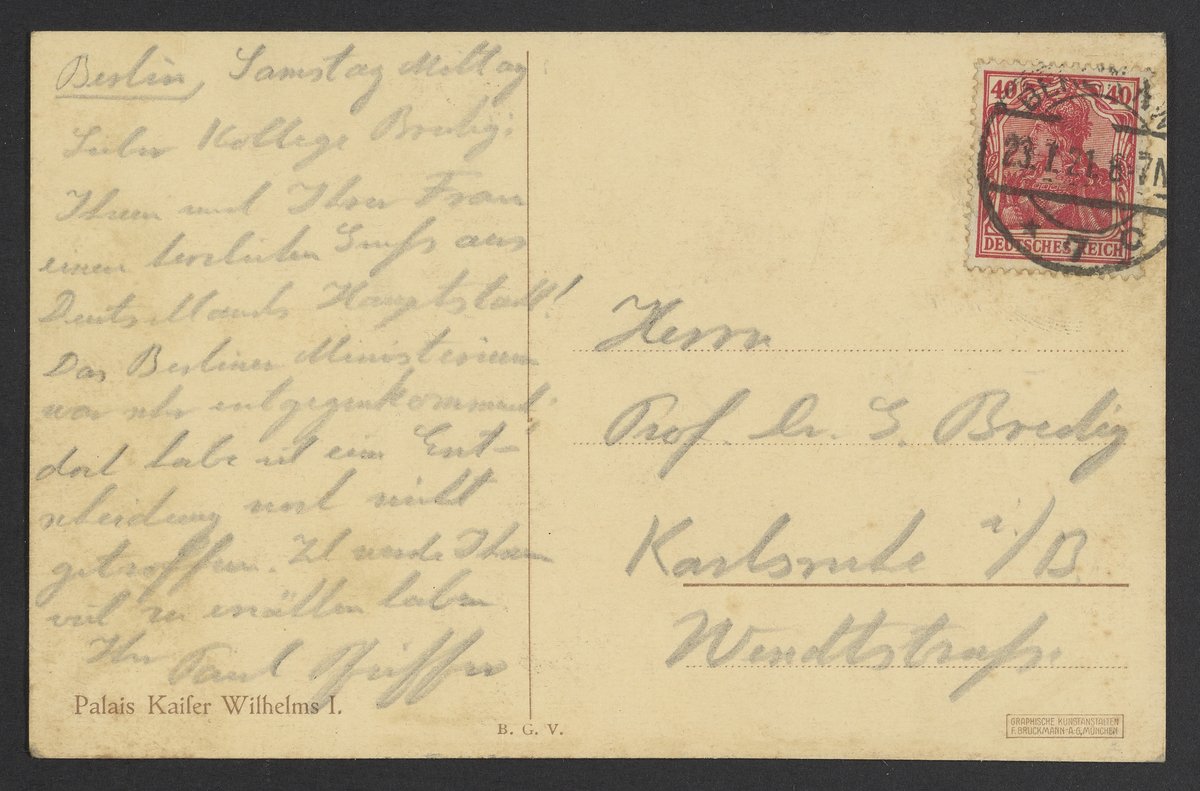 Berlin, Samstag Mittag
Lieber Kollege Bredig!
Ihnen und Ihrer Frau
einen herzlichen Gruß aus
Deutschlands Hauptstadt!
Das Berliner Ministerium
war sehr entgegenkommend;
doch habe ich eine Ent-
scheidung noch nicht
getroffen. Ich werde Ihnen
viel zu erzählen haben
Ihr Paul Pfeiffer
Palais Kaiſer Wilhelms I.
B. G. V.
40 40
DEUTSCHES REICH
23.1.21. 6-7N
* 7 C
Herrn
Prof. Dr. G. Bredig
Karlsruhe i/B
Wendtstraße
GRAPHISCHE KUNSTANSTALTEN
F. BRUCKMANN A-G, MÜNCHEN